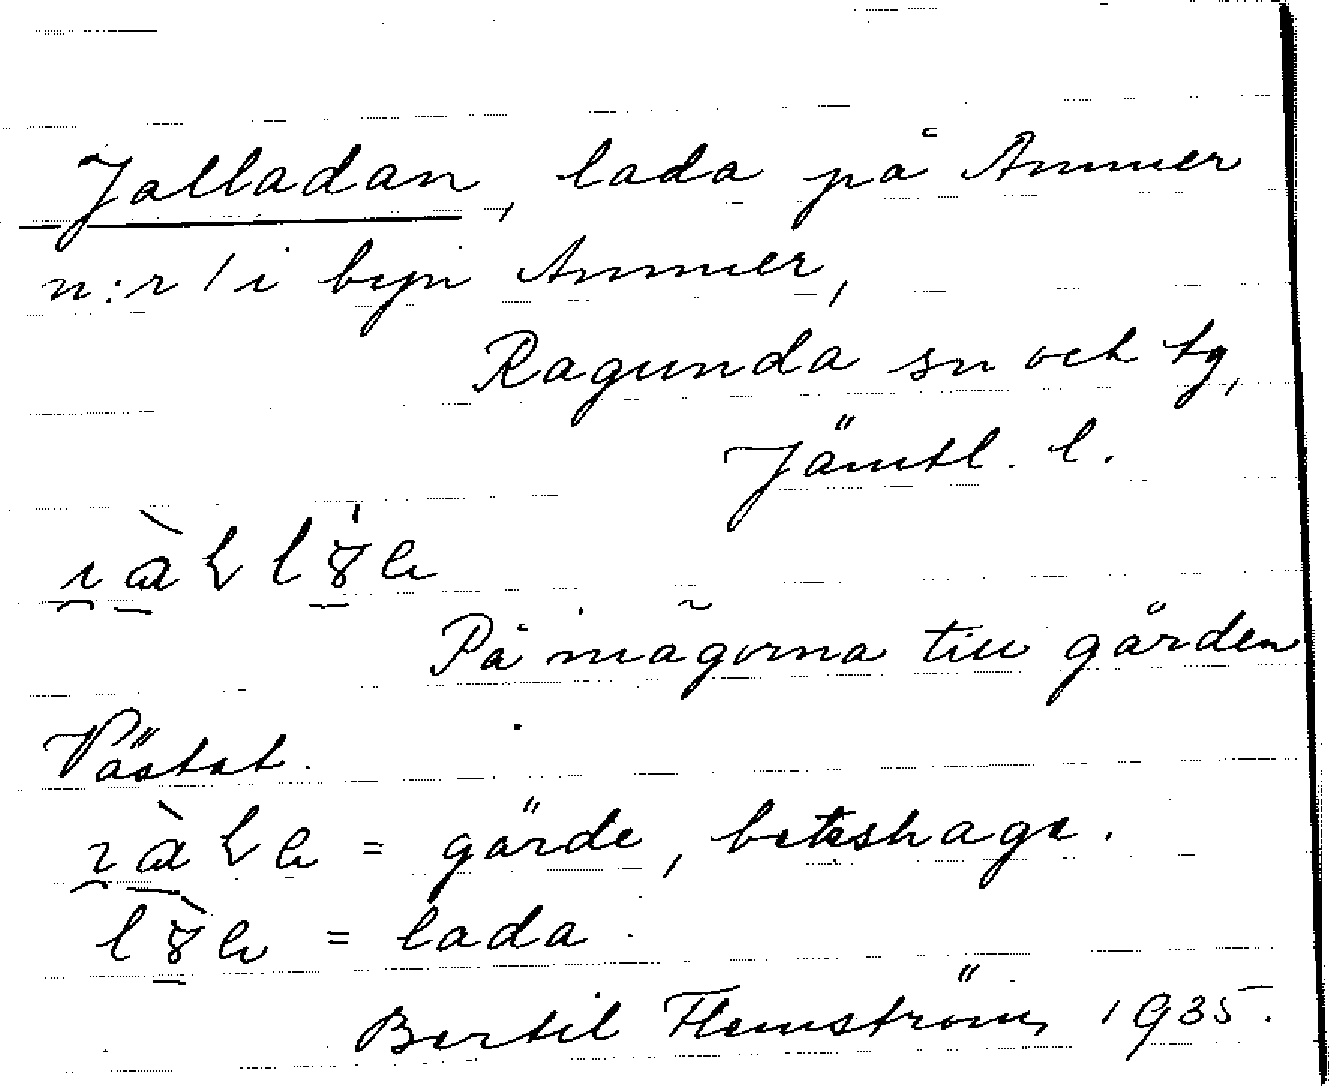 Jalladan, lada på Ammer
n:r 1 i byn Ammer,
Ragunda sn och tg,
Jämtl. l.
På mågorna till gården
Västat.
= gärde, beteshage.
= lada.
Bertil Flemström 1935.